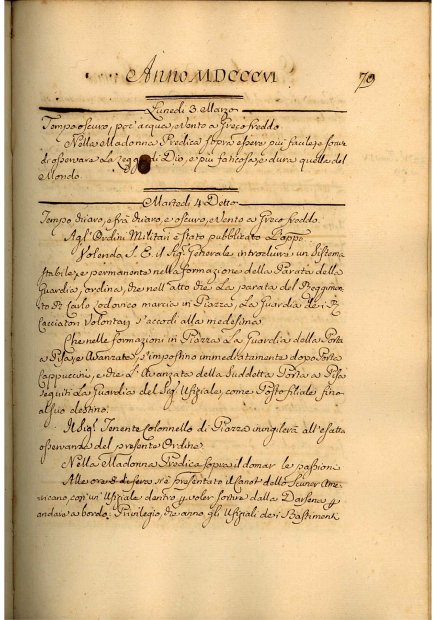 Anno MDCCCVI
79
Lunedi 3 Marzo
Tempo oscuro, poc' acqua, e Vento a Greco freddo.
Nella Madonna Predica sopra essere più facile
di osservare la Legge di Dio, e più faticosa, e dura quella del
Mondo.
Martedi 4 Detto
Tempo chiaro, e frà chiaro, e oscuro, e Vento a Greco freddo.
Agl' Ordini Militari è stato pubblicato L'app.o
Volendo S. E. il Sig.r Generale introdurre un Sistema
stabile, e permanente nella formazione della Parata della
Guardia, ordina, che nell' atto che La parata del Reggimen
to Rl. Carlo Lodovico marcia in Piazza, La Guardia dei R.
Cacciatori Volontarj s'accodi alla medesima.
Che nelle formazioni in Piazza La Guardia della Porta
a Pisa, e Avanzata, s'impostino immediatamente dopo Porta
Cappuccini, e che L'Avanzata della Suddetta Porta a Pisa
seguiti La Guardia del Sig.r Ufiziale, come Posto filiale fino
al suo destino.
Il Sig.r Tenente Colonnello di Piazza invigilerà all' esatta
osservanza del presente Ordine.
Nella Madonna Predica sopra il domar le passioni
Alle ore 8 di sera si è presentato il Canot dello Scuner Ame
ricano, con un' Ufiziale dentro p voler sortire dalla Darsena p
andare a bordo: Privilegio, che anno gli Ufiziali dei Bastimenti